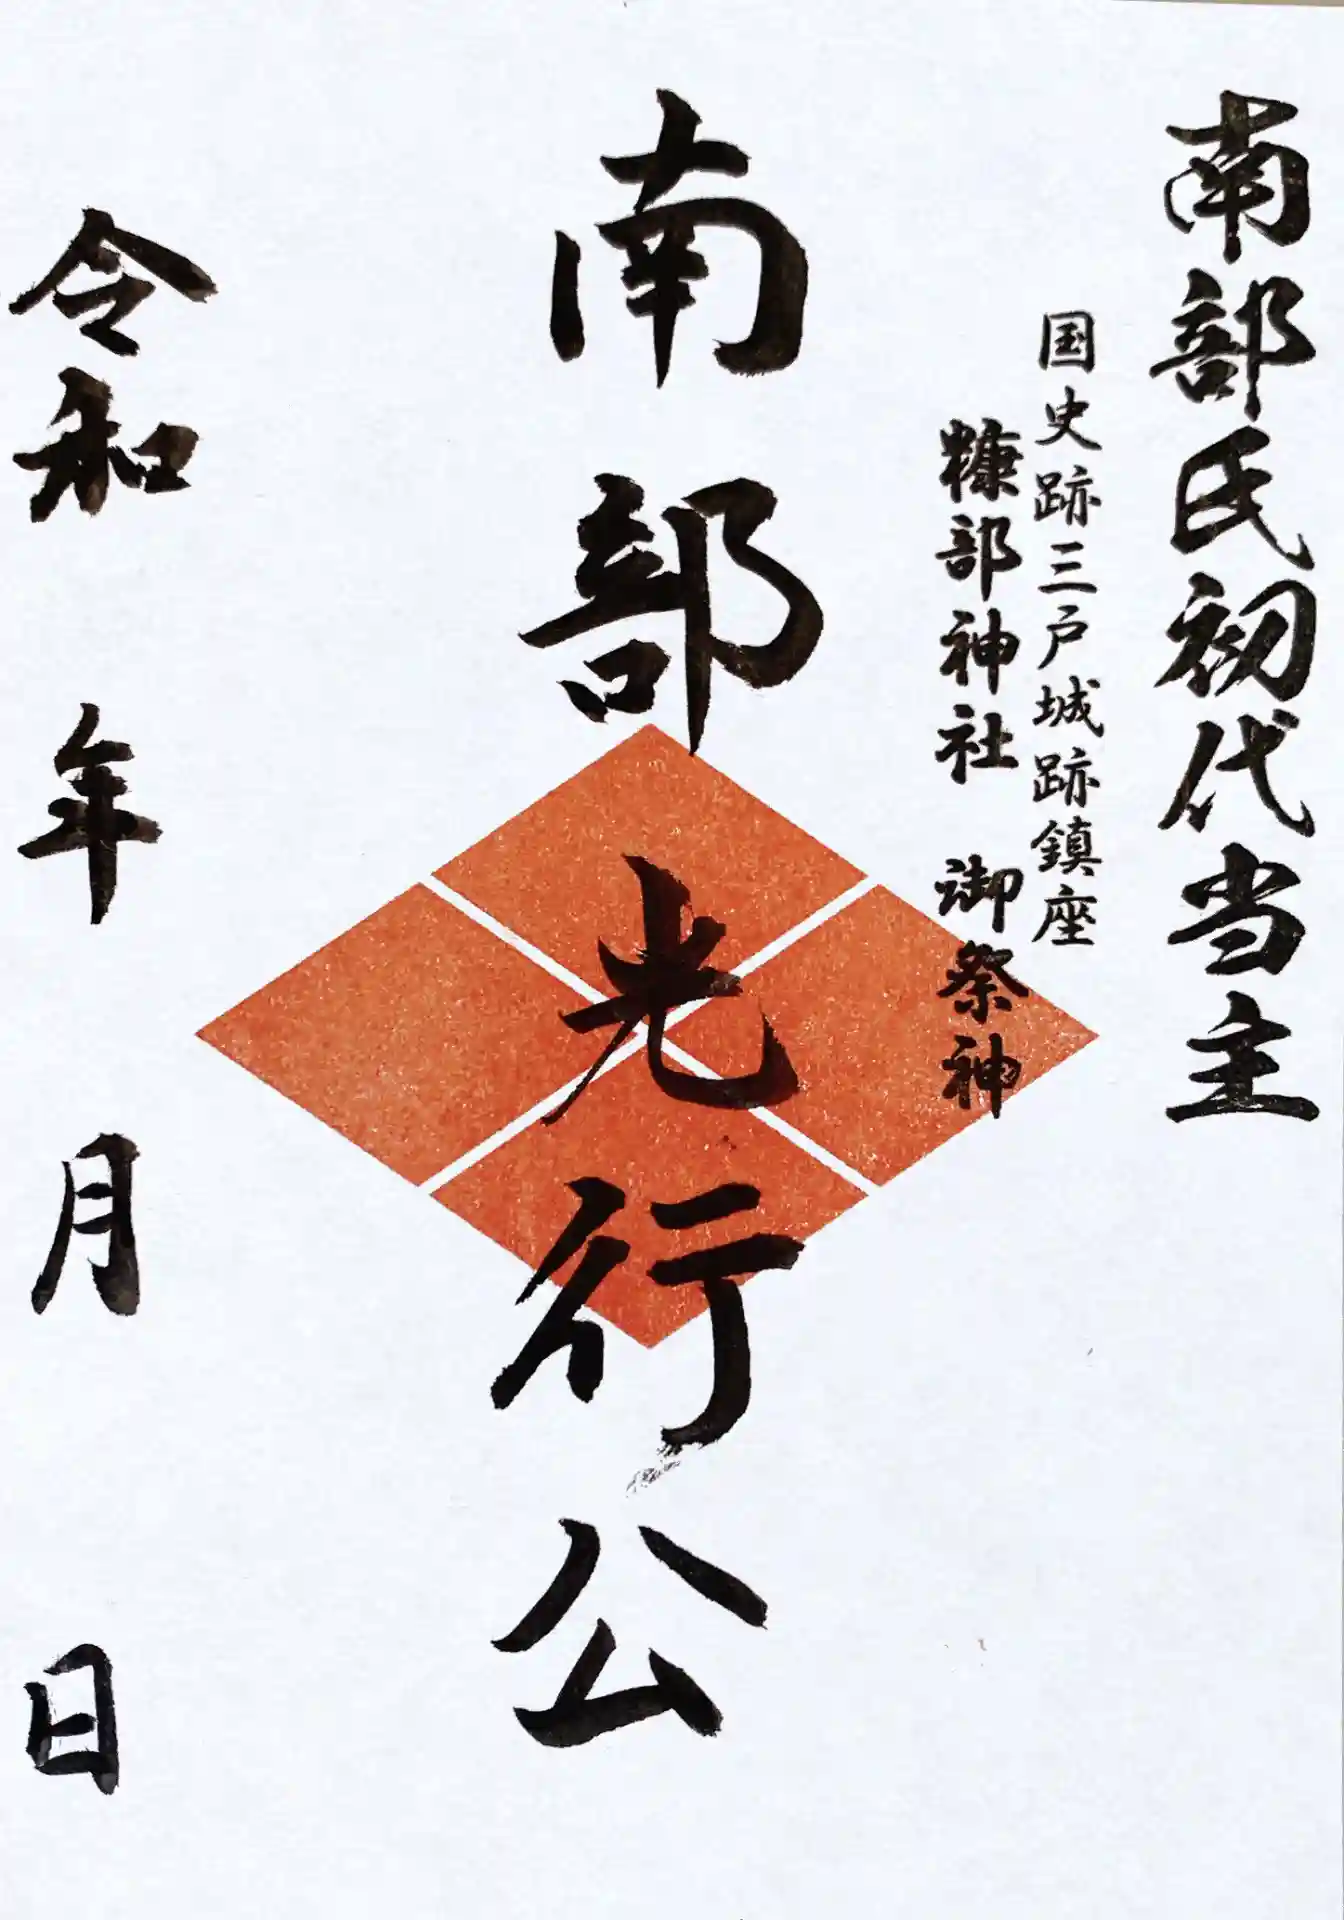 南部氏初代当主
国史跡三戸城跡鎮座
糠部神社 御祭神
南部光行公
令和 年 月 日